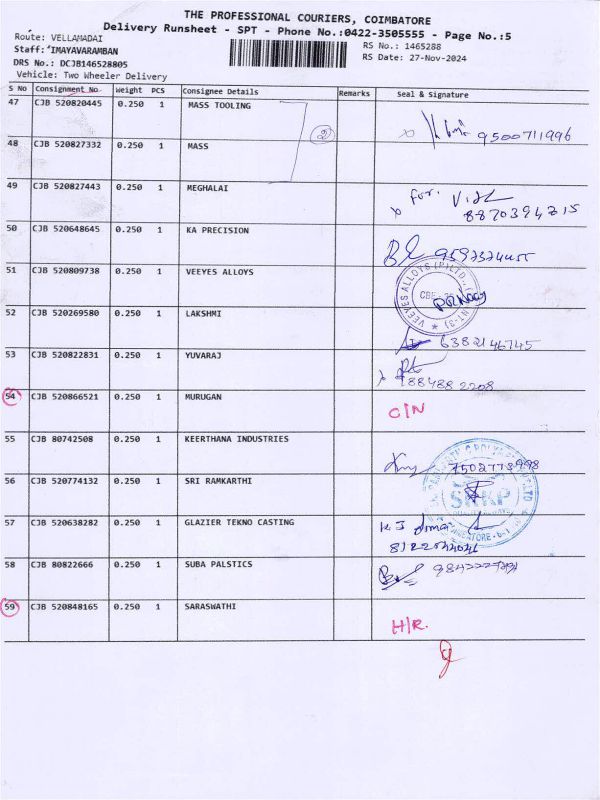 THE PROFESSIONAL COURIERS, COIMBATORE
Delivery Runsheet - SPT - Phone No.:0422-3505555 - Page No.:5
Route: VELLAMADAI
Staff: IMAYAVARAMBAN
RS No.: 1465288
DRS No.: DCJB146528805
RS Date: 27-Nov-2024
Vehicle: Two Wheeler Delivery
S No Consignment No Weight PCS Consignee Details Remarks Seal & Signature
47 CJB 520820445 0.250 1 MASS TOOLING
2
9500711996
48 CJB 520827332 0.250 1 MASS
49 CJB 520827443 0.250 1 MEGHALAI
for.
8870394215
50 CJB 520648645 0.250 1 KA PRECISION
51 CJB 520809738 0.250 1 VEEYES ALLOYS
VEEYES ALLOYS (P) LTD.,
52 CJB 520269580 0.250 1 LAKSHMI
6382146745
53 CJB 520822831 0.250 1 YUVARAJ
54 CJB 520866521 0.250 1 MURUGAN
C/N
55 CJB 80742508 0.250 1 KEERTHANA INDUSTRIES
56 CJB 520774132 0.250 1 SRI RAMKARTHI
57 CJB 520638282 0.250 1 GLAZIER TEKNO CASTING
58 CJB 80822666 0.250 1 SUBA PALSTICS
59 CJB 520848165 0.250 1 SARASWATHI
H/R.